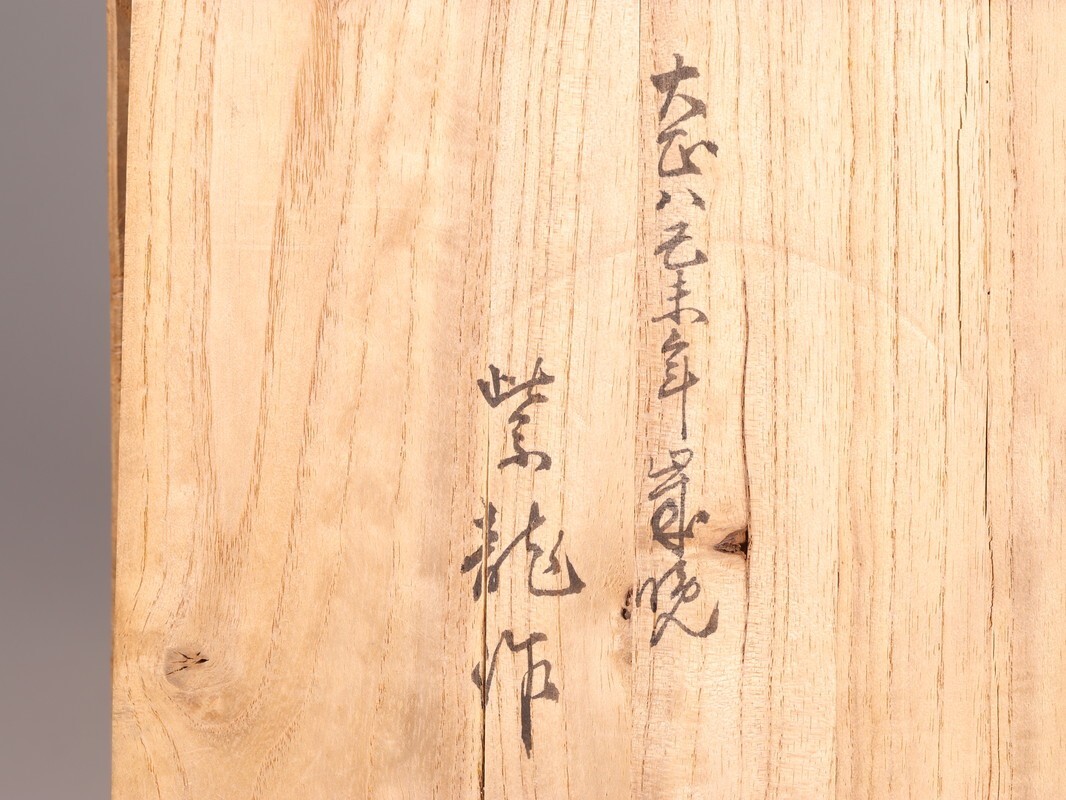 大正八己未年歳晩
紫龍作